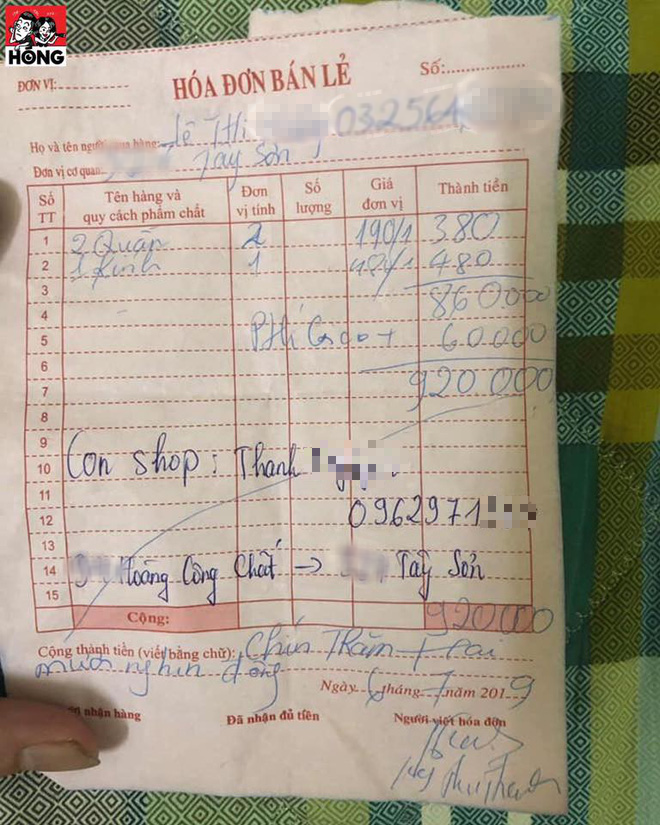 HÓNG
ĐƠN VỊ:
HÓA ĐƠN BÁN LẺ
Số:
Họ và tên người mua hàng: Lê Thị 032564
Đơn vị cơ quan: Tây Sơn
Số TT Tên hàng và quy cách phẩm chất Đơn vị tính Số lượng Giá đơn vị Thành tiền
1 2 Quần 2 190/1 380
2 1 kính 1 480/1 480
3 860000
4
5 Phí 60.000
6
7 920 000
8
9
10 Con shop: Thanh
11
12 0962971
13
14 Hoàng Công Chất → Tây Sơn
15
Cộng: 920000
Cộng thành tiền (viết bằng chữ): Chín Trăm Hai
mươi nghìn đồng
Ngày 6 tháng 7 năm 2019
nhận hàng Đã nhận đủ tiền Người viết hóa đơn